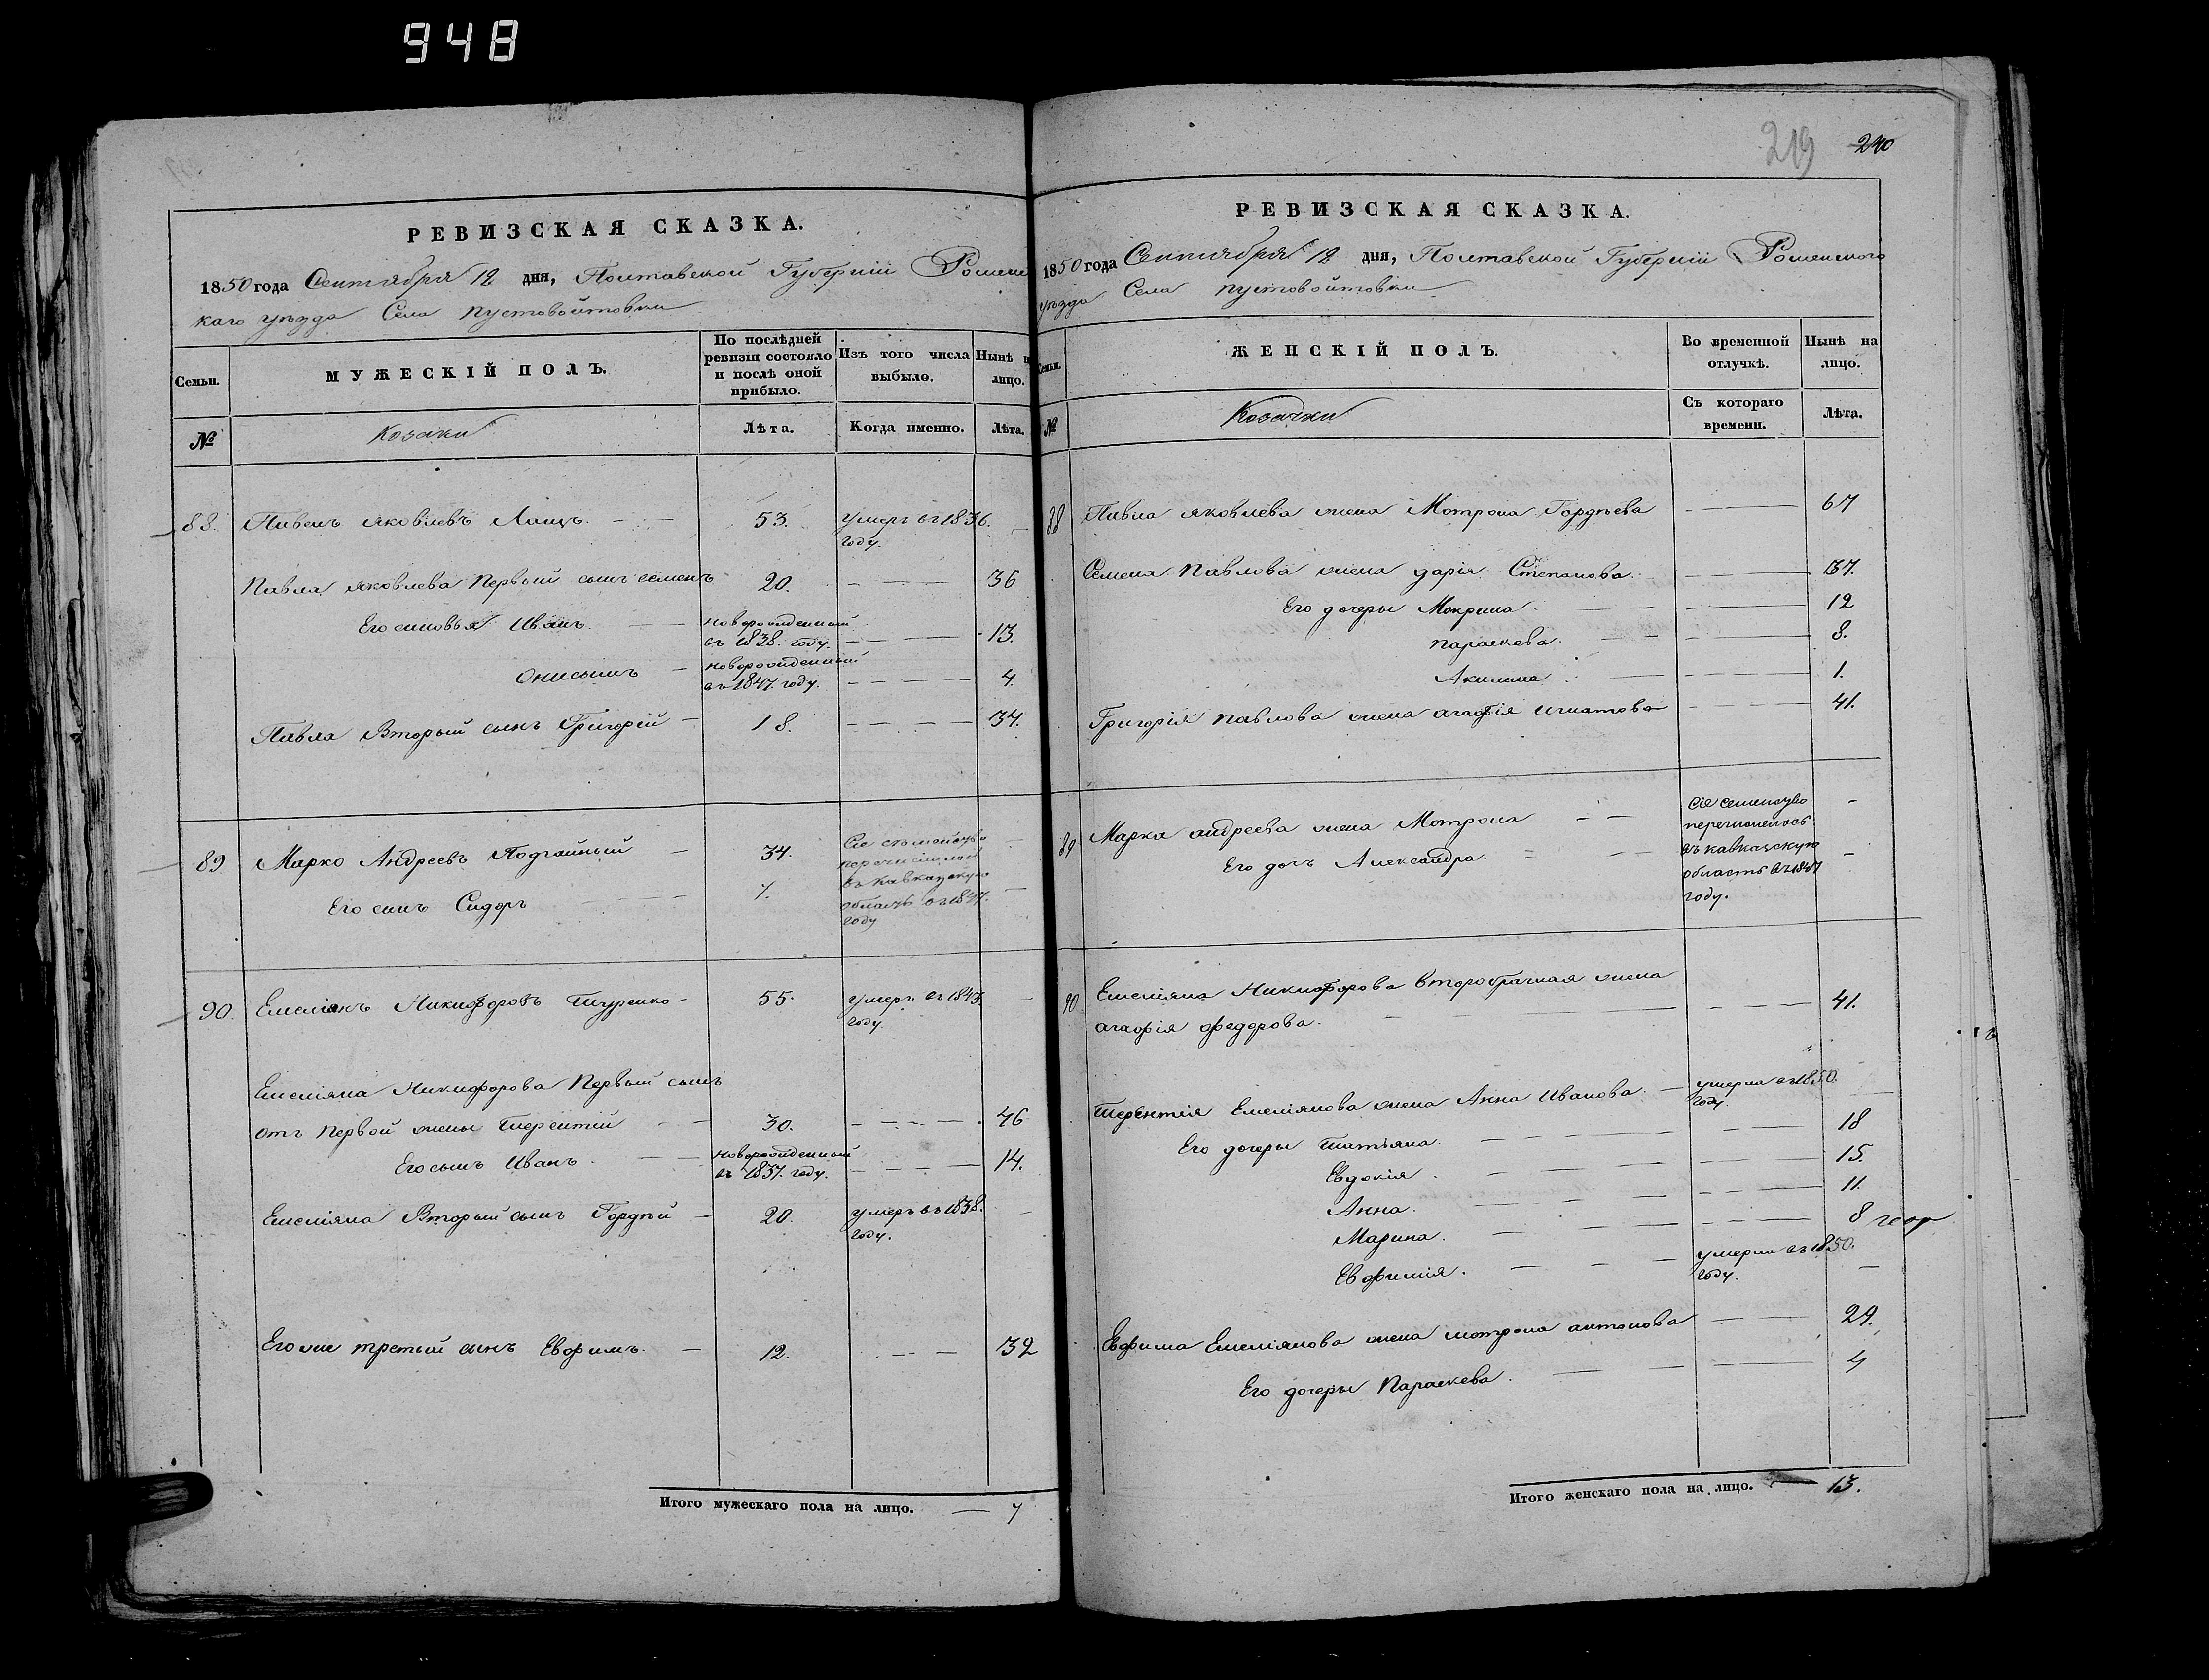 948
219 240
РЕВИЗСКАЯ СКАЗКА.
1850 года Сентября 12 дня, Полтавской Губерніи Роменс
каго уезда Села Пустовойтовки
Семьи. МУЖЕСКІЙ ПОЛЪ. По послѣдней ревизіи состояло и послѣ оной прибыло. Изъ того числа выбыло. Нынѣ н лицо.
№ Козаки Лѣта. Когда именно. Лѣта.
88. Павелъ Яковлевъ Лащъ. 53. умеръ въ 1836.
году.
Павла Яковлева Первый сынъ Семенъ 20. 36
Его сыновья Иванъ. новорожденный
въ 1838. году. 13.
Онисимъ новорожденный
въ 1847. году. 4.
Павла Вторый сынъ Григорій 18. 34.
89. Марко Андреевъ 34. Сіе семейство
перечислилось
Его сынъ Сидоръ 7. въ Кавказскую
область въ 1847.
году
90. Емеліянъ Никифоровъ Шуренко 55. умеръ въ 1843
году.
Емеліяна Никифорова Первый сынъ
отъ Первой жены Терентій 30. 46
Его сынъ Иванъ. новорожденный
въ 1837. году. 14.
Емеліяна Вторый сынъ Гордѣй 20. умеръ въ 1838.
году.
Его же третый сынъ Евфимъ. 12. 32
Итого мужескаго пола на лицо. 7
РЕВИЗСКАЯ СКАЗКА.
1850 года Сентября 12 дня, Полтавской Губерніи Роменского
уезда Села Пустовойтовки
Семьи. ЖЕНСКІЙ ПОЛЪ. Во временной отлучкѣ. Нынѣ на лицо.
№ Козачки Съ котораго времени. Лѣта.
88 Павла Яковлева жена Мотрона Гордѣева 67
Семена Павлова жена Дарія Степанова. 37.
Его дочеры Мокрина. 12
Параскева. 8.
Акилина 1.
Григорія Павлова жена Агафія Игнатова 41.
89 Марка Андреева жена Мотрона Сіе семейство
перечислилось
Его дочъ Александра. въ Кавказскую
область въ 1847
году.
90. Емеліяна Никифорова второбрачная жена
Агафія Федорова. 41.
Терентія Емеліянова жена Анна Иванова. умерла въ 1850.
году.
Его дочеры Татьяна. 18
Евдокія. 15.
Анна. 11.
Марина. 8
Евфимія. умерла въ 1850.
году.
Евфима Емеліянова жена Мотрона Антонова 29.
Его дочеры Параскева. 4
Итого женскаго пола на лицо. 13.